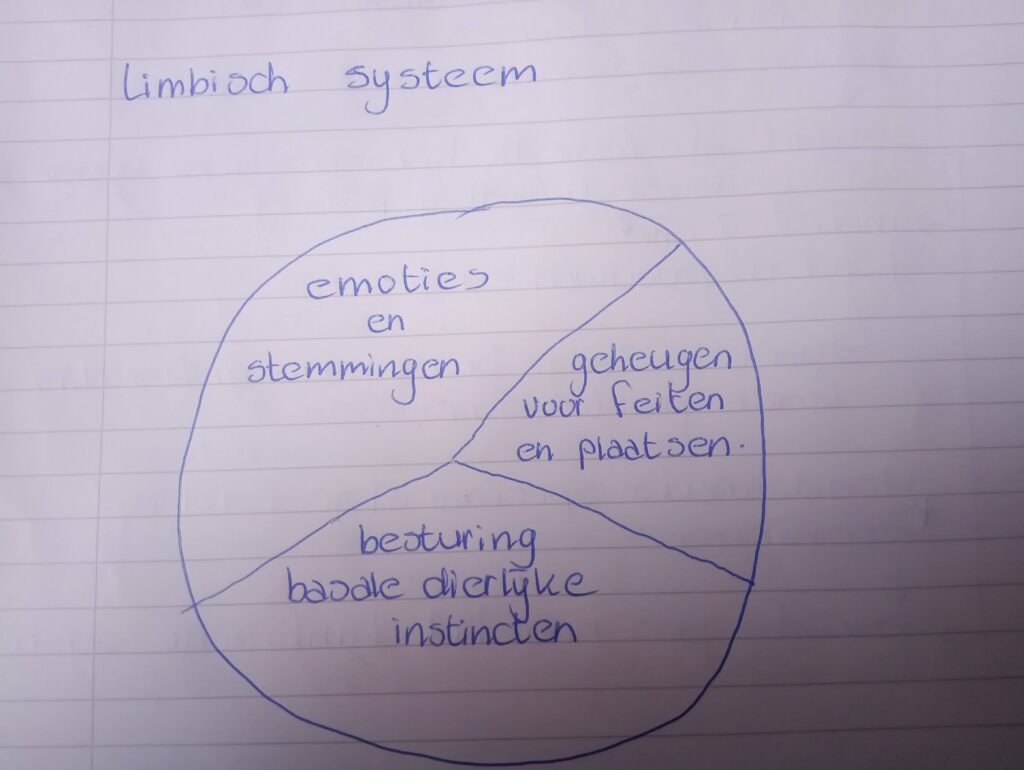 limbisch systeem
emoties
en
stemmingen
geheugen
voor feiten
en plaatsen.
besturing
basale dierlijke
instincten